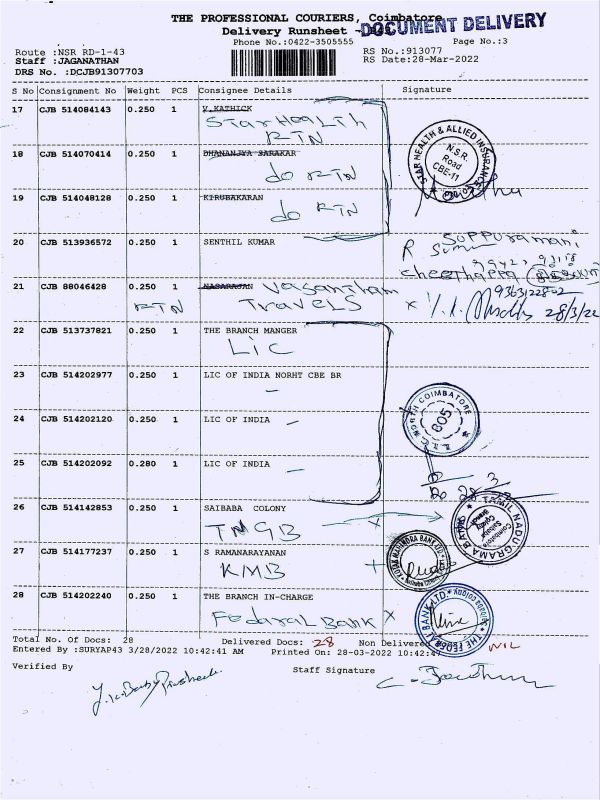 THE PROFESSIONAL COURIERS, Coimbatore
Delivery Runsheet - 
DOCUMENT DELIVERY
Phone No.:0422-3505555 Page No.:3
Route :NSR RD-1-43 RS No.:913077
Staff :JAGANATHAN RS Date:28-Mar-2022
DRS No. :DCJB91307703
S No Consignment No Weight PCS Consignee Details Signature
17 CJB 514084143 0.250 1 V.KATHICK
Star Health
RTN
STAR HEALTH & ALLIED INSURANCE
N.S.R.
Road
CBE-11
18 CJB 514070414 0.250 1 DHANANJYA SARAKAR
do RTN
19 CJB 514048128 0.250 1 KIRUBAKARAN
do RTN
20 CJB 513936572 0.250 1 SENTHIL KUMAR
21 CJB 88046428 0.250 1 NAGARAJAN Vasantham
RTN Travels
28/3/22
22 CJB 513737821 0.250 1 THE BRANCH MANGER
LIC
23 CJB 514202977 0.250 1 LIC OF INDIA NORHT CBE BR
24 CJB 514202120 0.250 1 LIC OF INDIA
L.I.C. NORTH COIMBATORE
805
25 CJB 514202092 0.280 1 LIC OF INDIA
26 CJB 514142853 0.250 1 SAIBABA COLONY
TNGB x
TAMIL NADU GRAMA BANK
27 CJB 514177237 0.250 1 S RAMANARAYANAN
KMB +
28 CJB 514202240 0.250 1 THE BRANCH IN-CHARGE
Federal Bank x
THE FEDERAL BANK LTD.
Total No. Of Docs: 28 Delivered Docs: 28 Non Delivered NIL
Entered By :SURYAP43 3/28/2022 10:42:41 AM Printed On: 28-03-2022 10:42:47
Verified By Staff Signature